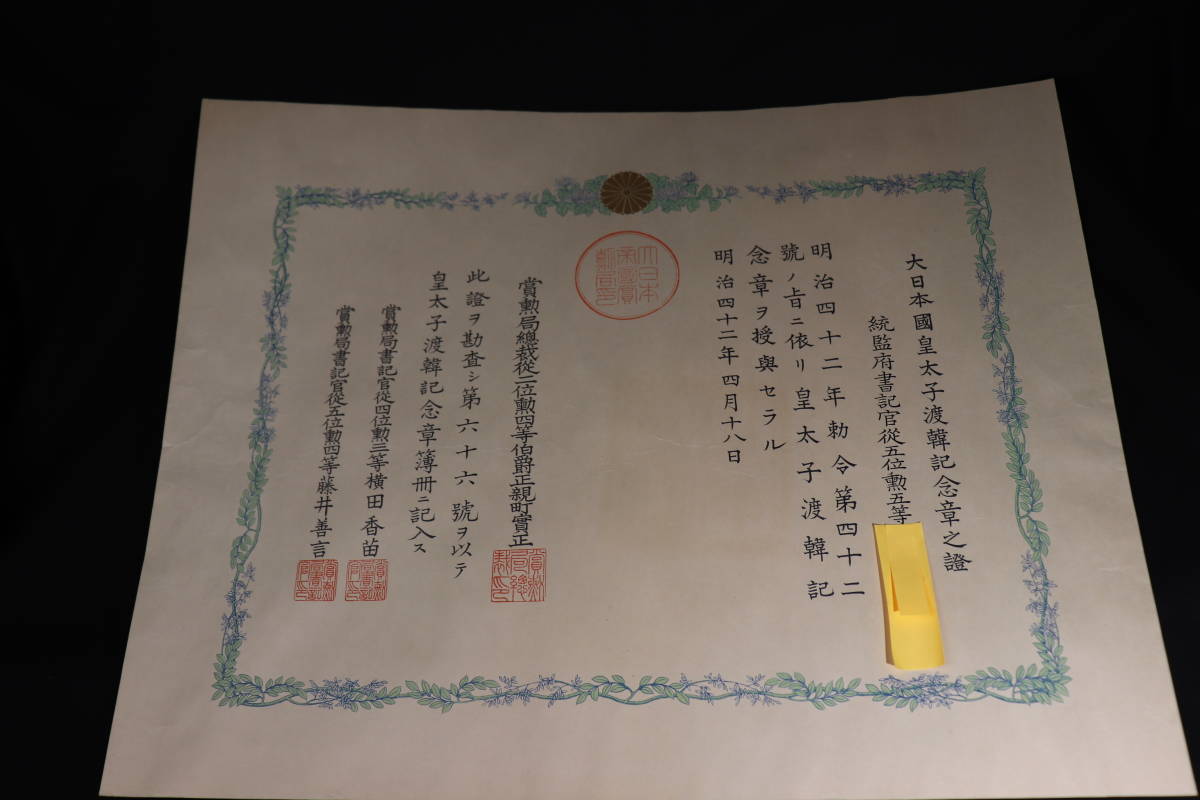 大日本國皇太子渡韓記念章之證
統監府書記官從五位勲五等
明治四十二年勅令第四十二
號ノ旨ニ依リ皇太子渡韓記
念章ヲ授與セラル
明治四十二年四月十八日
大日本
帝國賞
勲局印
賞勲局總裁從二位勲四等伯爵正親町實正
賞勲
局總
裁印
此證ヲ勘査シ第六十六號ヲ以テ
皇太子渡韓記念章簿册ニ記入ス
賞勲局書記官從四位勲三等横田香苗
賞勲局書記官從五位勲四等藤井善言